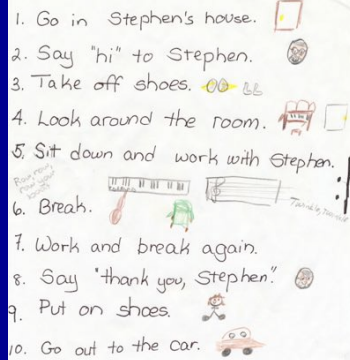 1. Go in Stephen's house.
2. Say "hi" to Stephen.
3. Take off shoes.
4. Look around the room.
5. Sit down and work with Stephen.
Row row
row your
boat
Twinkle, Twinkle
6. Break.
7. Work and break again.
8. Say "thank you, Stephen."
9. Put on shoes.
10. Go out to the car.